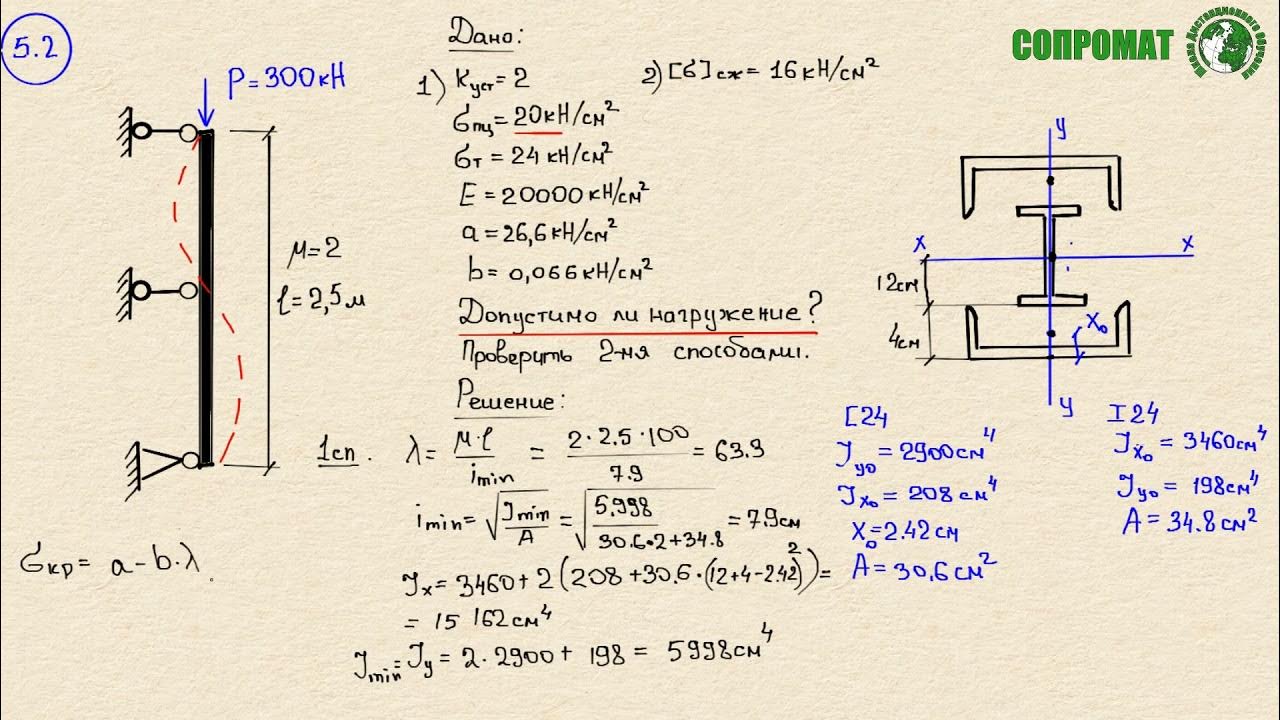 5.2
P=300кН
μ=2
ℓ=2,5м
Дано:
1) Kуст=2
2) [σ]сж=16кН/см²
σпц=20кН/см²
σт=24кН/см²
E=20000кН/см²
a=26,6кН/см²
b=0,066кН/см²
Допустимо ли нагружение?
Проверить 2-мя способами.
Решение:
1сп. λ= μ·ℓ/imin = 2·2.5·100/7.9 = 63.3
imin=√(Jmin/A) = √(5.998/(30.6·2+34.8)) = 7.9см
Jx=3460+2(208+30.6·(12+4-2.42)²)=
= 15 162см⁴
Jmin=Jy=2·2900+198=5998см⁴
σкр= a-b·λ
СОПРОМАТ
y
x
x
12см
4см
x₀
y
[24
Jy₀=2900см⁴
Jx₀=208см⁴
X₀=2.42см
A=30,6см²
I24
Jx₀=3460см⁴
Jy₀=198см⁴
A=34.8см²